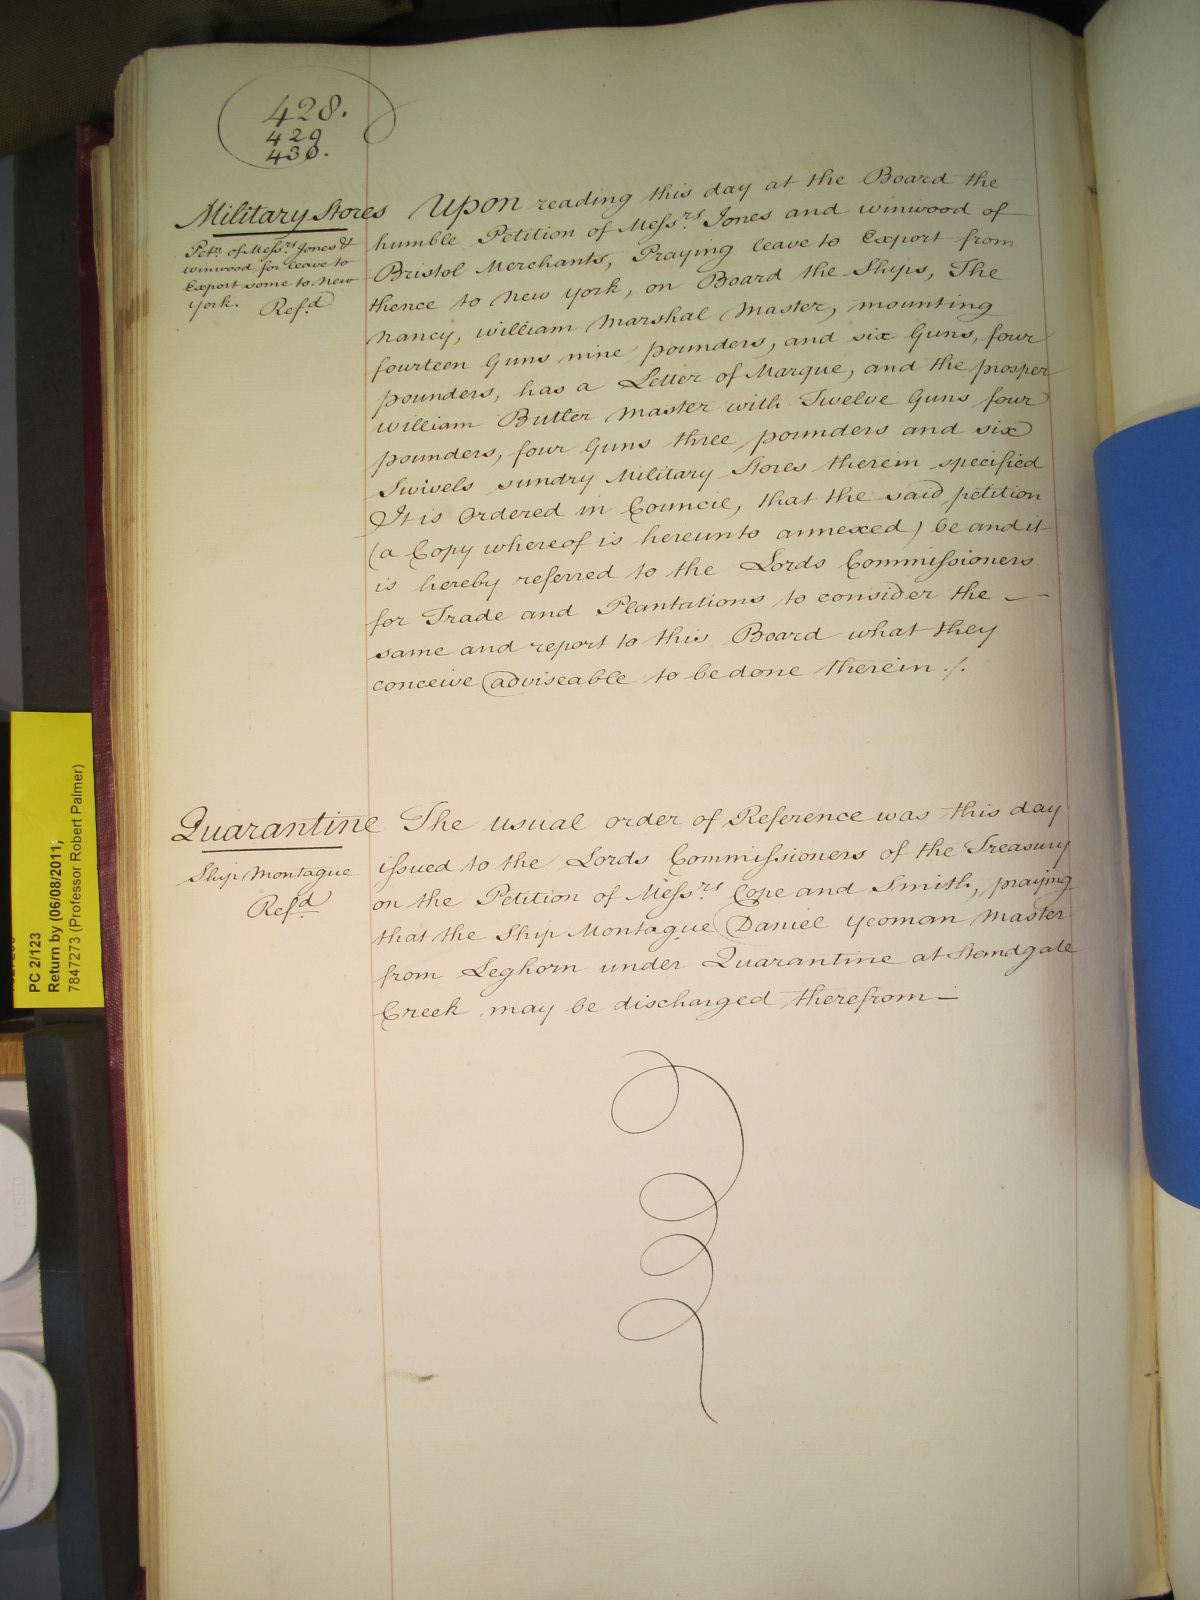 428.
429
430.
Military Stores
Petn. of Messrs. Jones &
Winwood for leave to
Export some to New
York. Refd.
Upon reading this day at the Board the
humble Petition of Messrs. Jones and Winwood of
Bristol Merchants, Praying leave to Export from
thence to New York, on Board the Ships, The
Nancy, William Marshal Master, mounting
fourteen Guns nine pounders, and six Guns, four
pounders, has a Letter of Marque, and the prosper
William Butler Master with Twelve Guns four
pounders, four Guns three pounders and six
Swivels sundry Military Stores therein specified
It is Ordered in Council, that the said petition
(a Copy whereof is hereunto annexed) be and it
is hereby referred to the Lords Commissioners
for Trade and Plantations to consider the —
same and report to this Board what they
conceive adviseable to be done therein ./.
Quarantine
Ship Montague
Refd.
The usual order of Reference was this day
issued to the Lords Commissioners of the Treasury
on the Petition of Messrs. Cope and Smith, praying
that the Ship Montague Daniel Yeoman Master
from Leghorn under Quarantine at Standgate
Creek may be discharged therefrom —
PC 2/123
Return by (06/08/2011;
7847273 (Professor Robert Palmer)